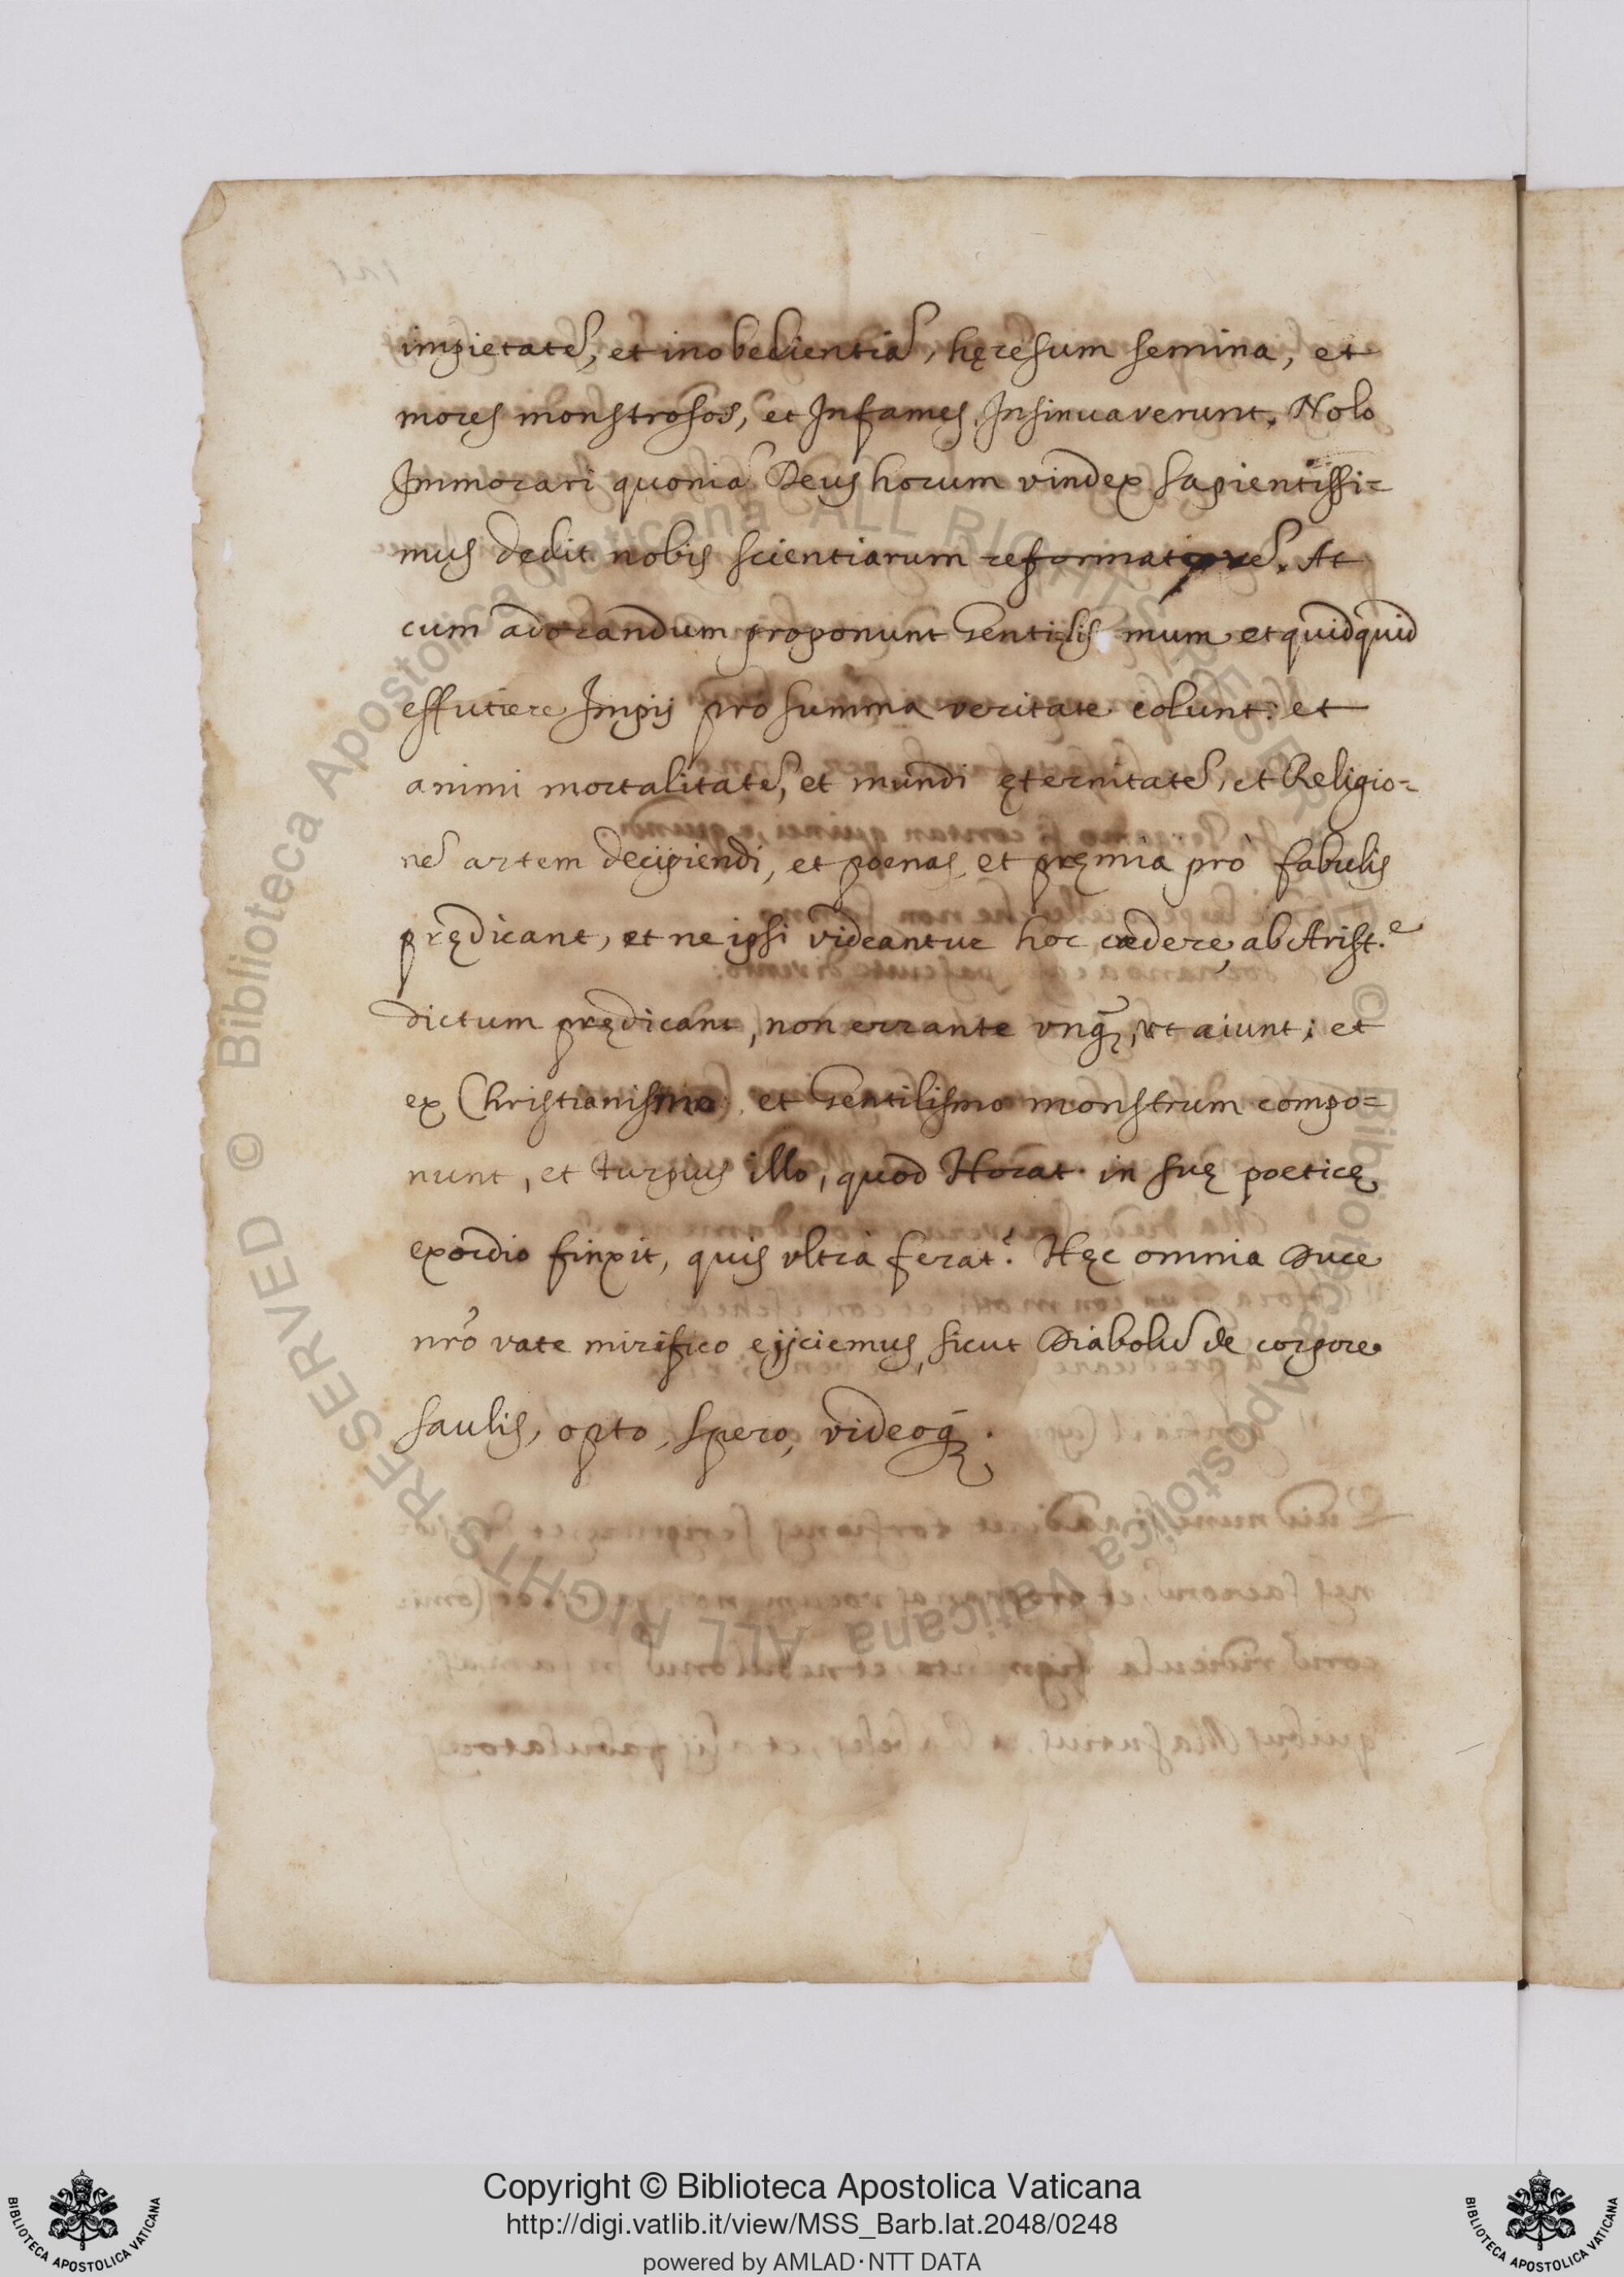 impietatẽ, et inobedientiã, hęresum semina, et
mores monstrosos, et Infames Insinuaverunt. Nolo
Immorari quoniã Deus horum vindex sapientissi=
mus dedit nobis scientiarum reformatorẽ. At
cum adorandum proponunt Gentilismum et quidquid
effutiere Impij prò summa veritate colunt: et
animi mortalitatẽ, et mundi ęternitatẽ, et Religio=
nẽ artem decipiendi, et poenas et pręmia prò fabulis
prędicant, et ne ipsi videantur hoc credere, ab Arist.e
dictum prędicant, non errante vnq̃, vt aiunt; et
ex Christianismo, et Gentilismo monstrum compo=
nunt, et turpius illo, quod Horat. in suę poeticę
exordio finxit, quis vltrà ferat? Hęc omnia Duce
nr̃o vate mirifico eijciemus, sicut Diabolũ de corpore
saulis, opto, spero, videoq̃.
Copyright © Biblioteca Apostolica Vaticana
http://digi.vatlib.it/view/MSS_Barb.lat.2048/0248
powered by AMLAD·NTT DATA
BIBLIOTECA APOSTOLICA VATICANA
BIBLIOTECA APOSTOLICA VATICANA
© Biblioteca Apostolica Vaticana ALL RIGHTS RESERVED
© Biblioteca Apostolica Vaticana ALL RIGHTS RESERVED